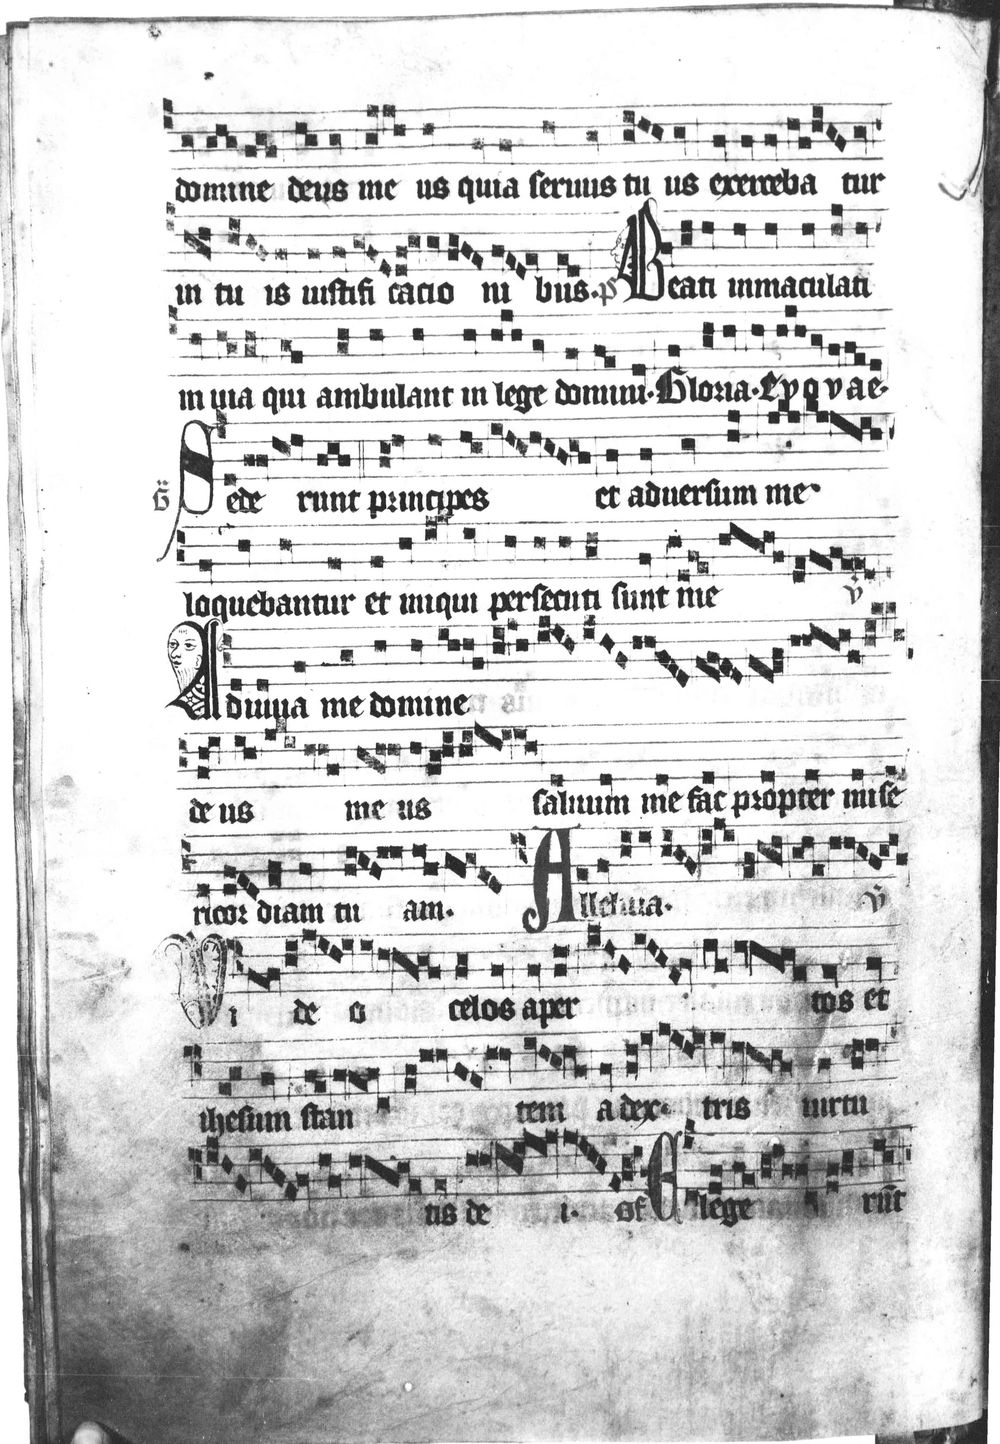 domine deus me us quia seruus tu us exerceba tur
in tu is iustifi cacio ni bus. p̄ Beati inmaculati
in uia qui ambulant in lege domini. Gloria. Euouae.
G̈ Sede runt principes et aduersum me
loquebantur et iniqui persecuti sunt me v̄
Adiuua me domine
de us me us saluum me fac propter mise
ricor diam tu am. Alleluia. v̄
Vi de o celos aper tos et
ihesum stan tem a dex tris uirtu
tis de i. of Elege rūt